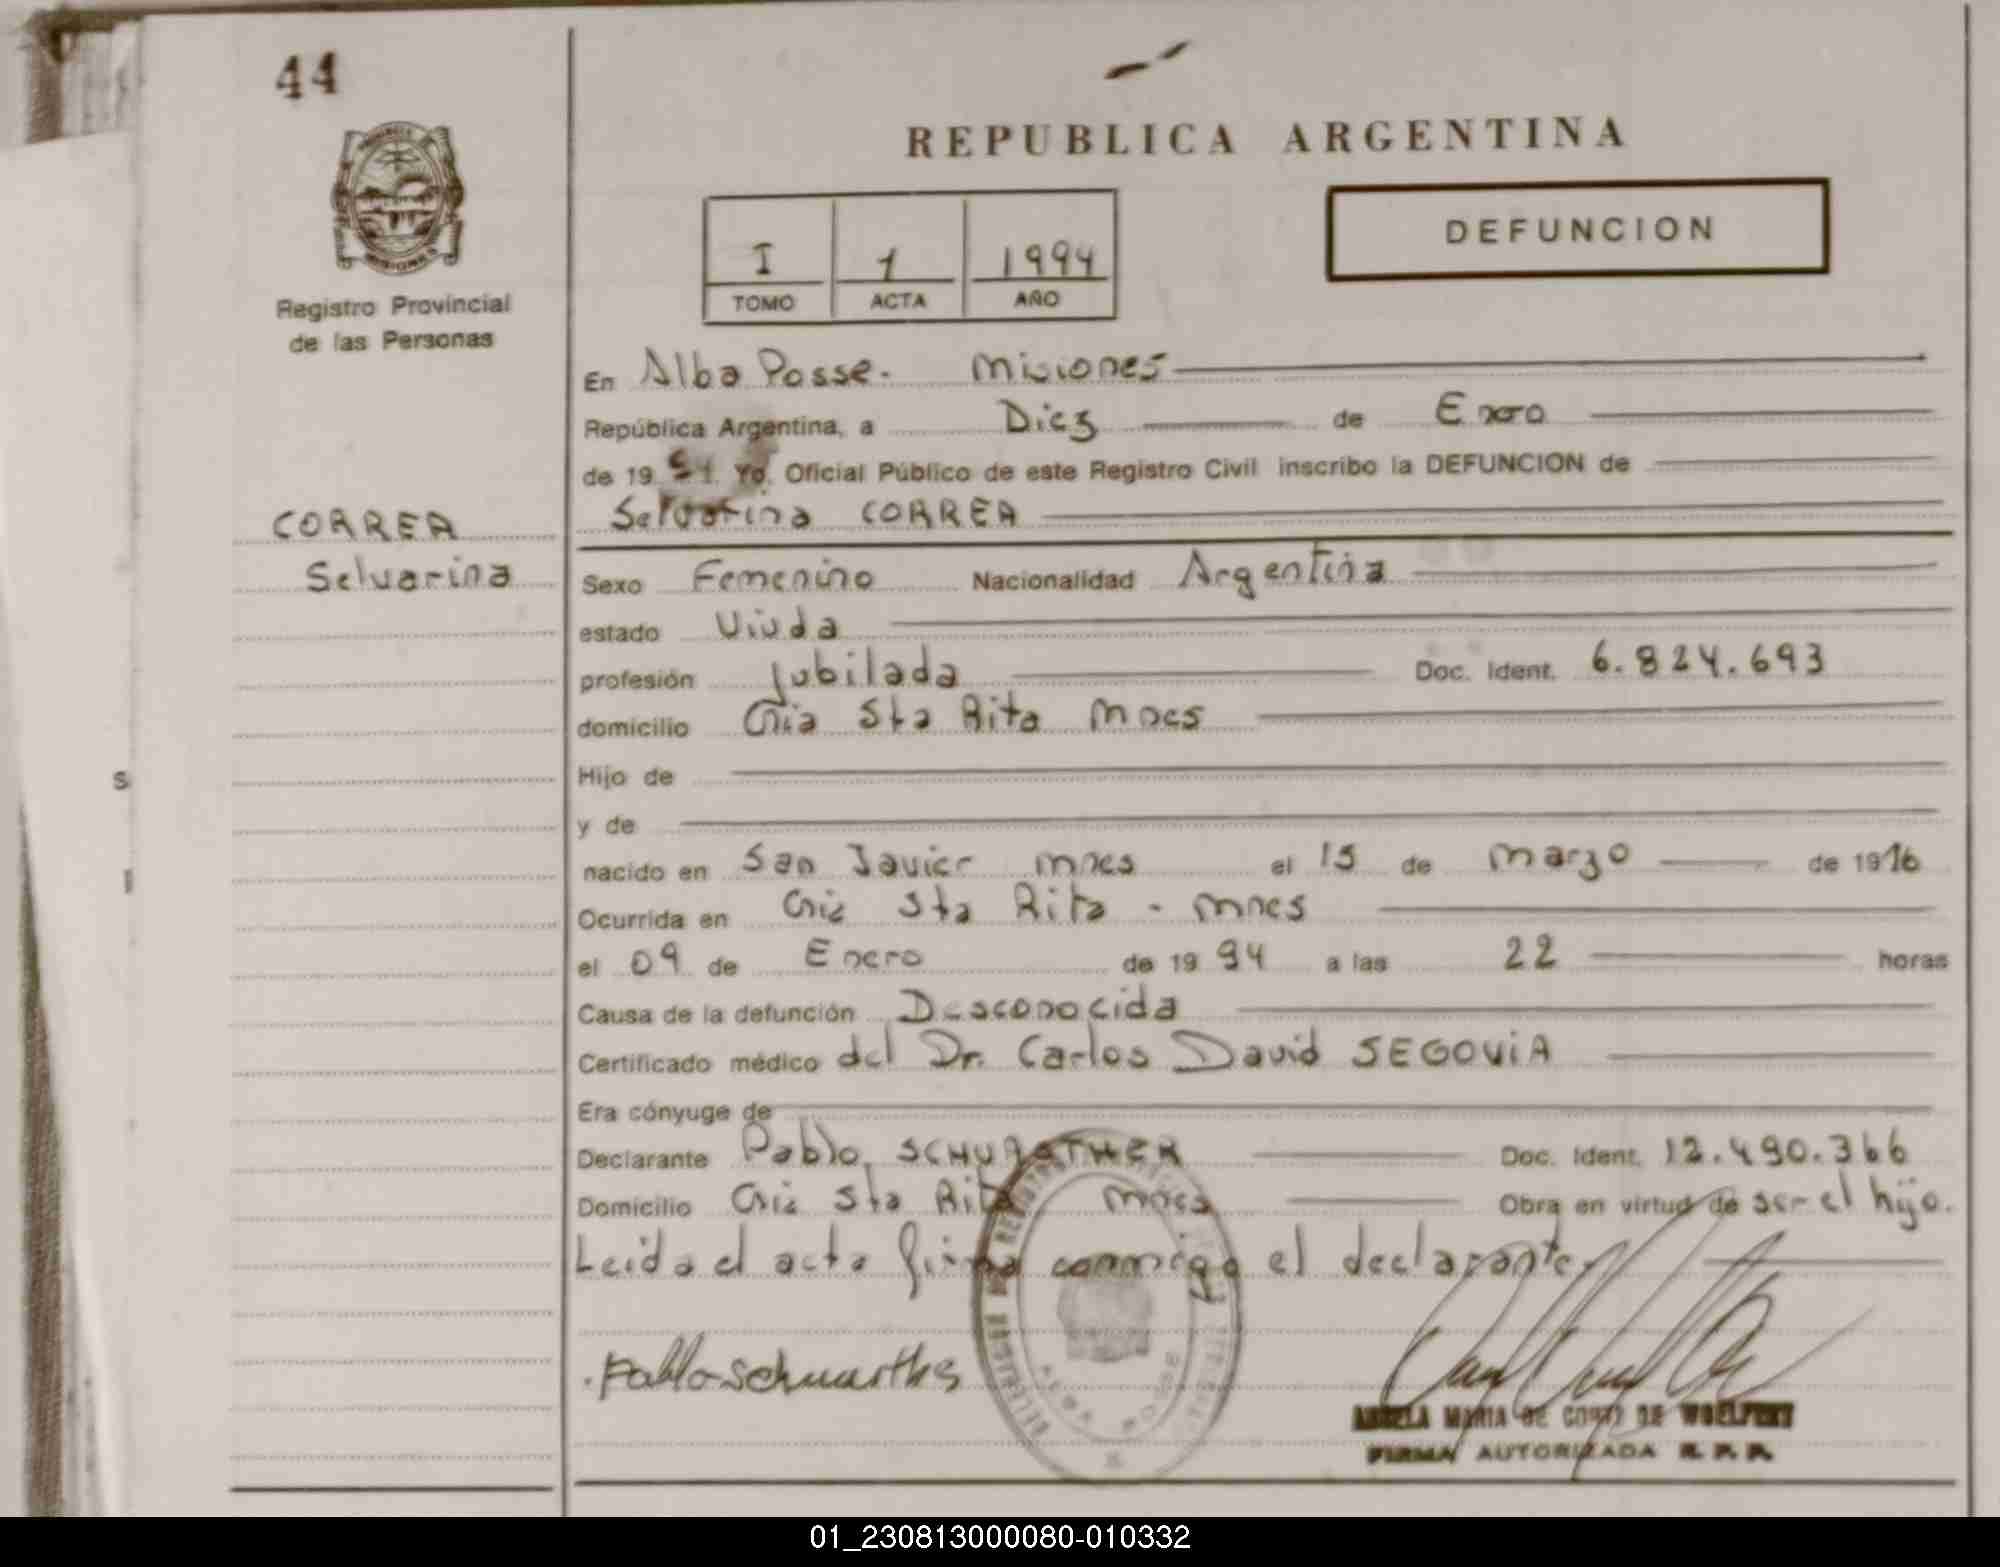 44
REPUBLICA ARGENTINA
MISIONES
Registro Provincial
de las Personas
I 1 1994
TOMO ACTA AÑO
DEFUNCION
En Alba Posse. Misiones
República Argentina, a Diez de Enero
de 19 94 Yo, Oficial Público de este Registro Civil inscribo la DEFUNCION de
Selvarina CORREA
CORREA
Selvarina
Sexo Femenino Nacionalidad Argentina
estado Viuda
profesión Jubilada Doc. Ident. 6.824.693
domicilio Cnia Sta Rita Mnes
Hijo de
y de
nacido en San Javier Mnes el 15 de Marzo de 1916
Ocurrida en Cnia Sta Rita - Mnes
el 09 de Enero de 19 94 a las 22 horas
Causa de la defunción Desconocida
Certificado médico del Dr. Carlos David SEGOVIA
Era cónyuge de
Declarante Pablo Doc. Ident. 12.490.366
Domicilio Cnia Sta Rita Mnes Obra en virtud de ser el hijo.
Leida el acta firma conmigo el declarante.
Pablo
ALBA POSSE
ANGELA MARIA DE
FIRMA AUTORIZADA R. P. P.
S
01_230813000080-010332